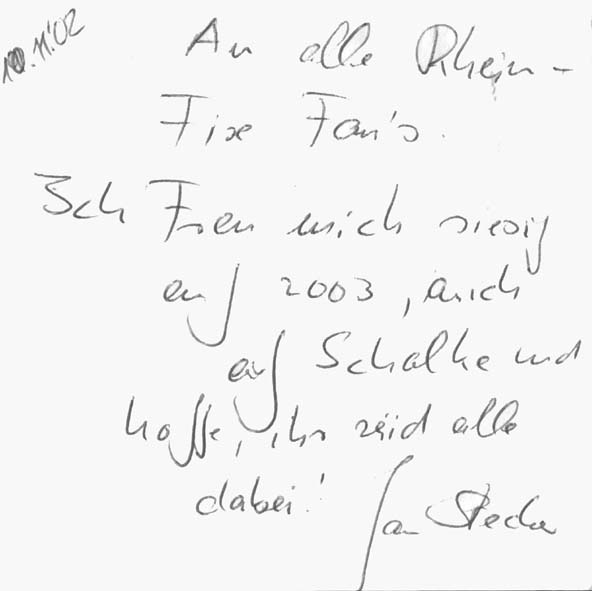 10.11.'02
An alle Rhein-
Fire Fan's.
Ich Freu mich riesig
auf 2003, auch
auf Schalke und
hoffe, ihr seid alle
dabei!
Jan Stecker